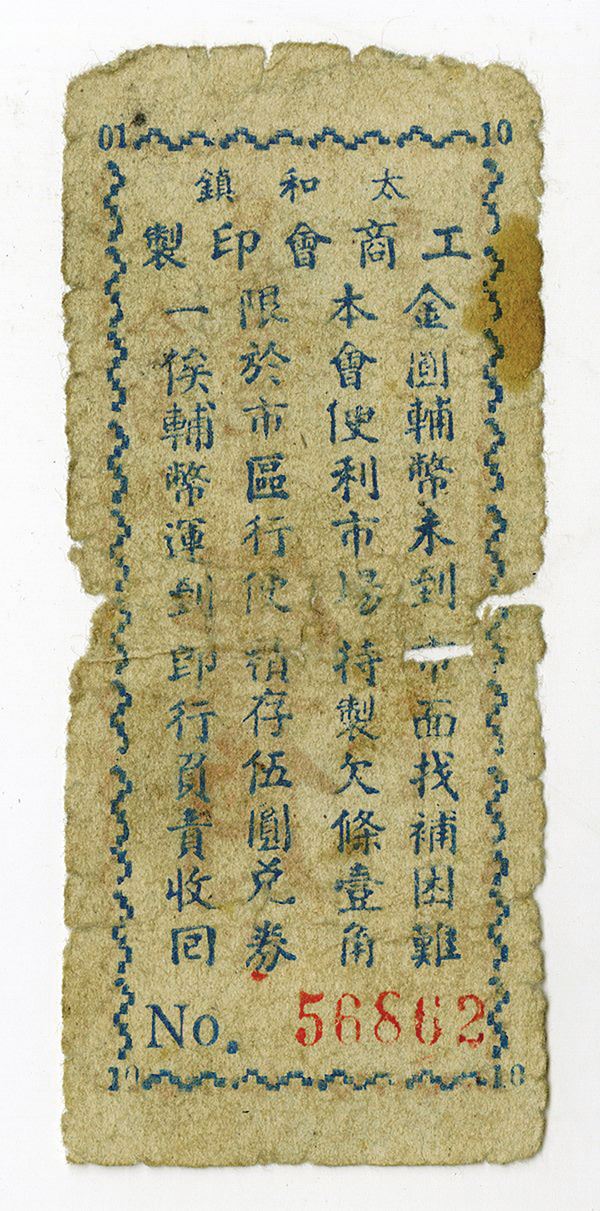 01 10
太和鎮
工商會印製
金圓輔幣未到市面找補困難
本會便利市場特製欠條壹角
限於市區行使積存伍圓兌券
一俟輔幣運到即行負責收回
No. 56862
10 10